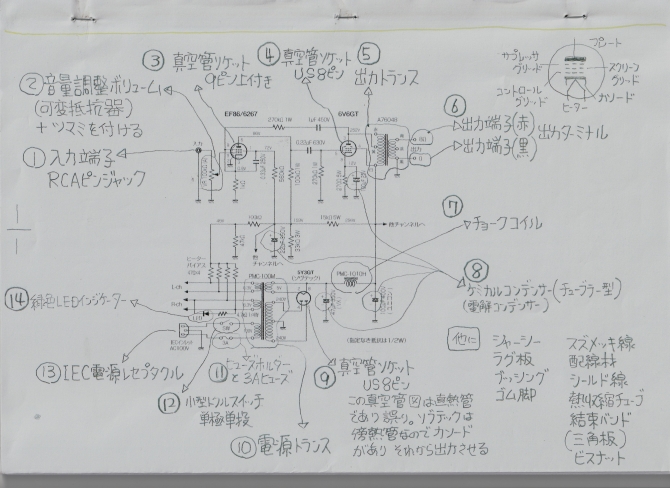 ③ 真空管ソケット
9ピン上付き
④ 真空管ソケット
US8ピン
⑤
出力トランス
プレート
サプレッサ
グリッド
スクリーン
グリッド
コントロール
グリッド
カソード
ヒーター
② 音量調整ボリューム
(可変抵抗器)
+ツマミを付ける
EF86/6267
6V6GT
270kΩ 1W
① 入力端子
RCAピンジャック
入力
出力
⑥
出力端子(赤)
出力端子(黒)
出力ターミナル
⑦
チョークコイル
他チャンネルへ
他
チャンネルへ
ヒーター
バイアス
L-ch
R-ch
PMC-100M
5Y3GT
(ソヴテック)
(指定なき抵抗は1/2W)
⑧
ケミカルコンデンサー(チューブラー型)
(電解コンデンサー)
⑭ 緑色LEDインジケーター
LED
AC100V
3A
⑬ IEC電源レセプタクル
⑪ ヒューズホルダー
と3Aヒューズ
⑫ 小型トグルスイッチ
単極単投
⑩ 電源トランス
⑨ 真空管ソケット
US8ピン
この真空管図は直熱管
であり誤り。ソヴテックは
傍熱管なのでカソード
があり それから出力させる
他に
シャーシー
ラグ板
ブッシング
ゴム脚
スズメッキ線
配線材
シールド線
熱収縮チューブ
結束バンド
(三角板)
ビスナット